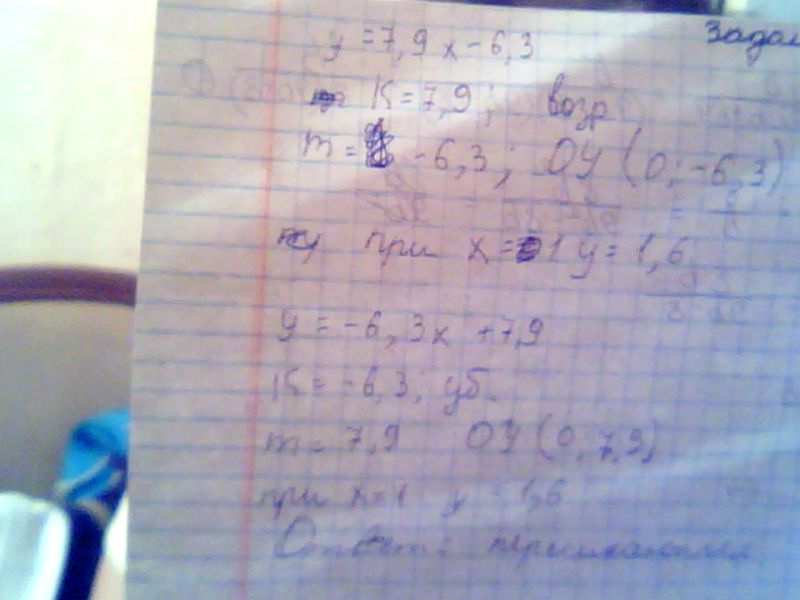 Задан
y = 7,9 x - 6,3
K = 7,9 ; возр
m = -6,3 ; OY (0; -6,3)
при x = 1 y = 1,6
y = -6,3x + 7,9
K = -6,3; уб.
m = 7,9 OY (0; 7,9)
при x = 1 y = 1,6
Ответ: пересекаются